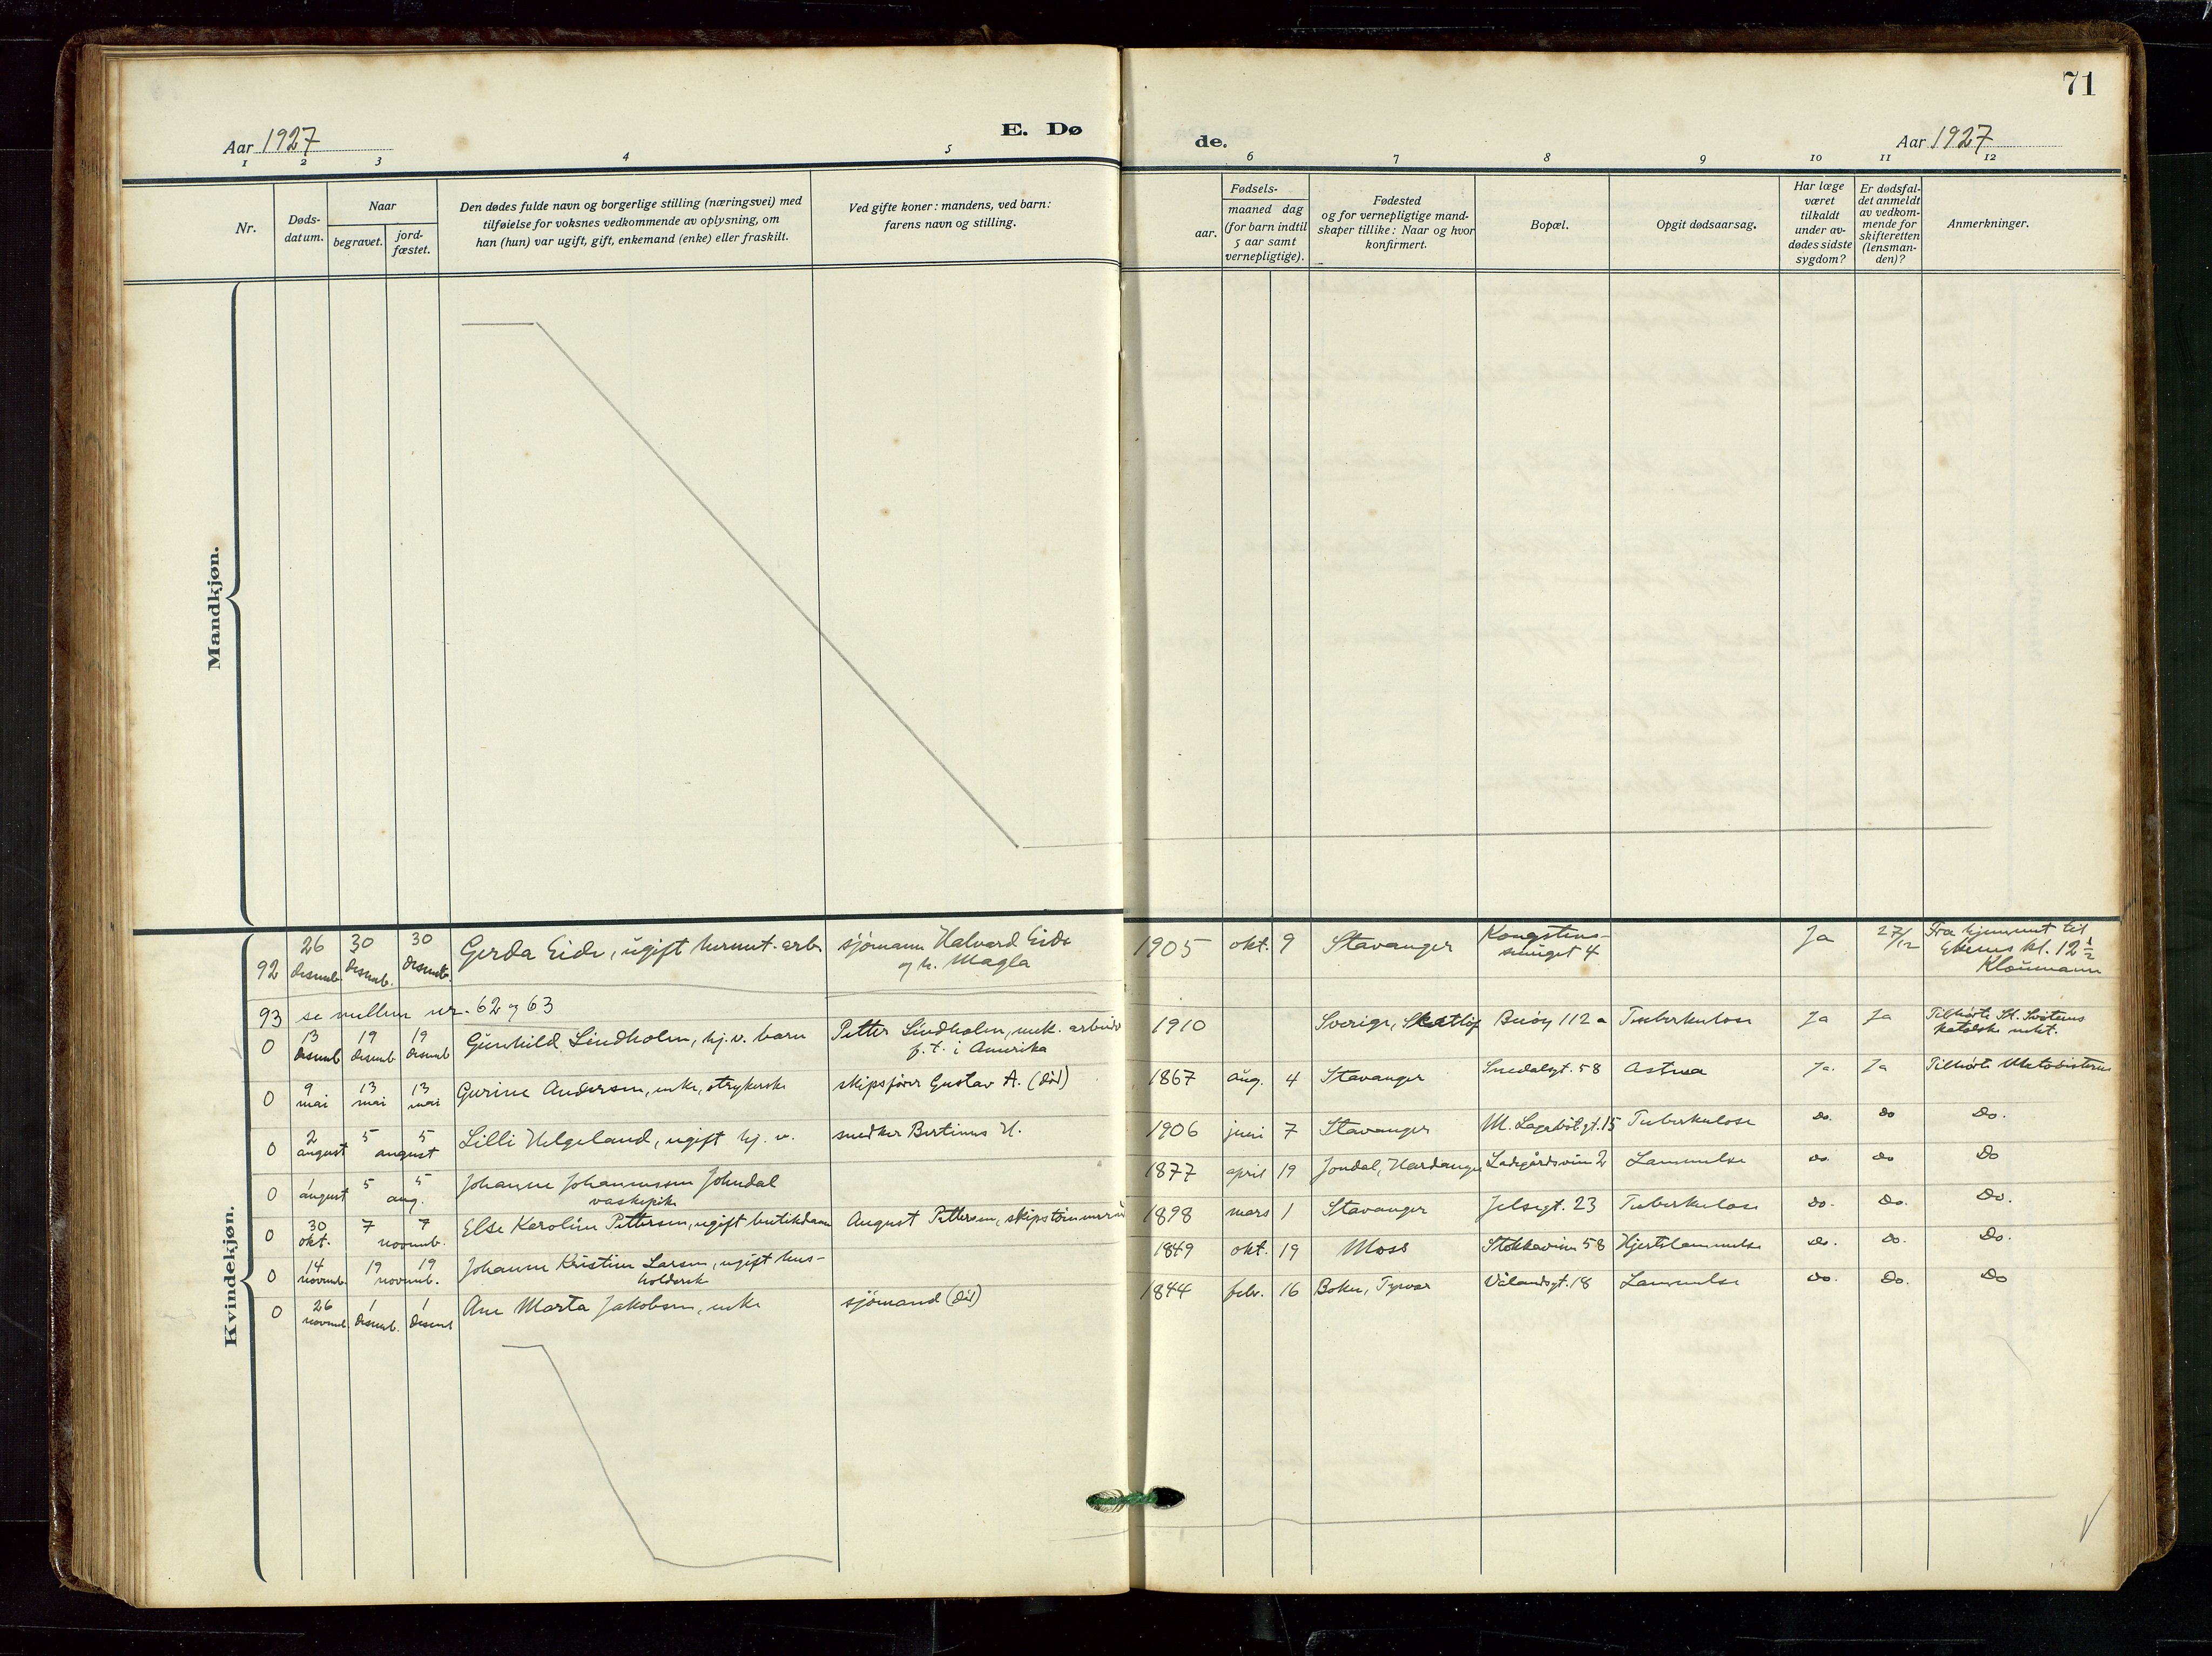 71
Aar 1927
E. Dø
de.
Aar 1927
1 2 3 4 5 6 7 8 9 10 11 12
Nr.
Døds-
datum.
Naar
begravet.
jord-
fæstet.
Den dødes fulde navn og borgerlige stilling (næringsvei) med
tilføielse for voksnes vedkommende av oplysning, om
han (hun) var ugift, gift, enkemand (enke) eller fraskilt.
Ved gifte koner: mandens, ved barn:
farens navn og stilling.
Fødsels-
aar.
maaned dag
(for barn indtil
5 aar samt
vernepligtige).
Fødested
og for vernepligtige mand-
skaper tillike: Naar og hvor
konfirmert.
Bopæl.
Opgit dødsaarsag.
Har læge
været
tilkaldt
under av-
dødes sidste
sygdom?
Er dødsfal-
det anmeldt
av vedkom-
mende for
skifteretten
(lensman-
den)?
Anmerkninger.
Mandkjøn.
Kvindekjøn.
92 26 desemb. 30 desemb. 30 desemb. Gerda Eide, ugift hermet. arb. sjømann Halvard Eide
og h. Magla
1905 okt. 9 Stavanger Kongstens-
smuget 4 Ja 27/12 Fra hjemmet til
kl. 12½
93 se mellem nr. 62 og 63
0 13 desemb 19 desemb. 19 desemb Gunhild Lindholm, hj. v. barn Petter Lindholm, mek. arbeid
f. t. i Amerika
1910 Sverige, Buøy 112a Tuberkulose Ja Ja Tilhørte St. Svituns
katolske mkt.
0 9 mai 13 mai 13 mai Gurine Andersen, enke, strykerske skipsfører Gustav A. (död) 1867 aug. 4 Stavanger Suldalsgt. 58 Astma Ja. Ja Tilhørte Metodisterne
0 2 august 5 5 august Lilli Helgeland, ugift hj. v. snedker Bertinus H. 1906 juni 7 Stavanger M. Lagabøtgt. 15 Tuberkulose do. do Do.
0 1 august 5 5 aug. Johanne Johannessen Johndal
vaskepike 1877 april 19 Jondal, Hardanger Ladegårdsveien 2 Lammelse do. do Do
0 30 okt. 7 7 novemb. Else Karoline Pettersen, ugift butikdame August Pettersen, skipstømmerm 1898 mars 1 Stavanger Jelsagt. 23 Tuberkulose do. Do. Do.
0 14 novemb. 19 19 novemb. Johanne Kristine Larsen, ugift hus-
holdersk 1849 okt. 19 Moss Stokkaveien 58 Hjertelammelse do. Do. Do.
0 26 novemb 1 desemb. 1 desemb Ane Marta Jakobsen, enke sjömand (död) 1844 febr. 16 Boken, Tysvær Vålandsgt. 18 Lammelse Do. Do. Do